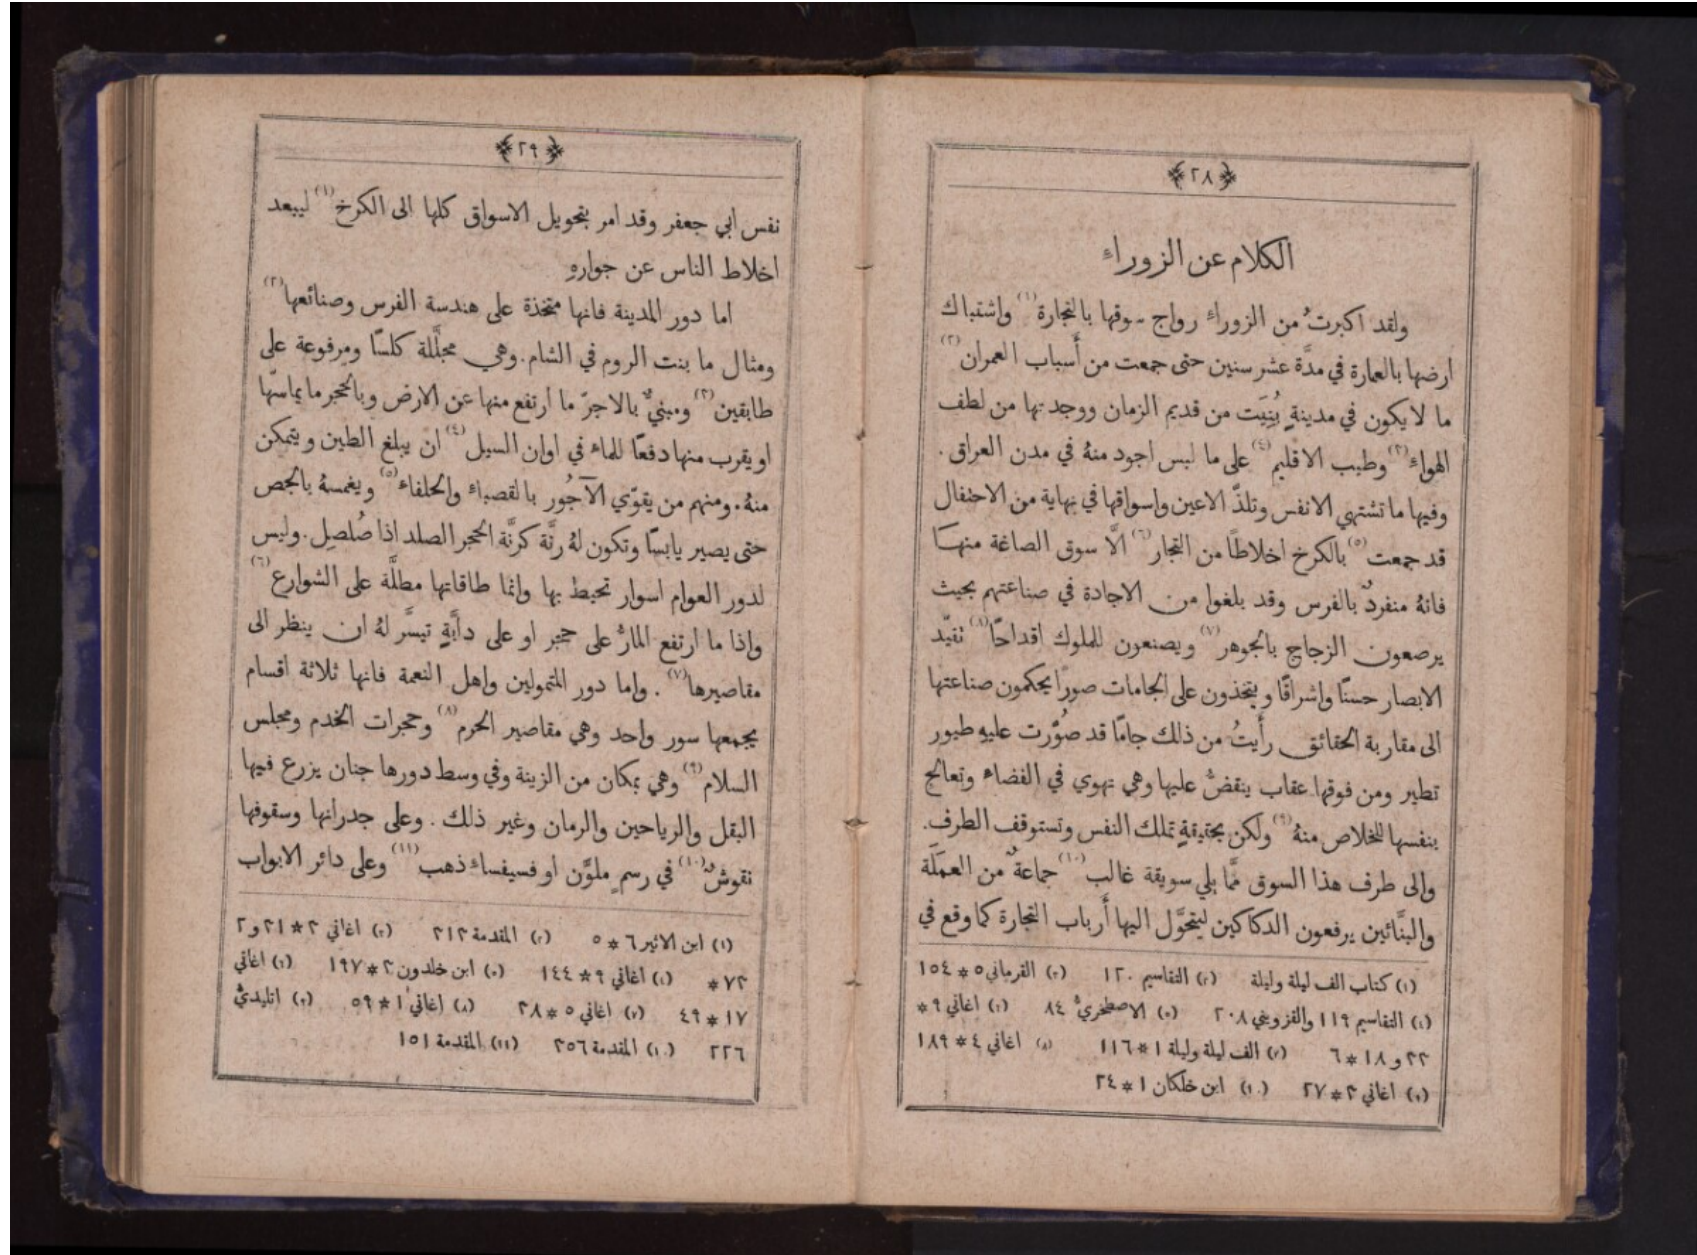 ﴿٢٨﴾
الكلام عن الزوراءِ
ولقد اكبرتُ من الزوراءِ رواج سوقها بالتجارة(١) واشتباك
ارضها بالعمارة في مدَّة عشر سنين حتى جمعت من أسباب العمران(٢)
ما لا يكون في مدينةٍ بُنِيَت من قديم الزمان ووجدتها من لطف
الهواءِ(٣) وطيب الاقليم(٤) على ما ليس اجود منهُ في مدن العراق .
وفيها ما تشتهي الانفس وتلذّ الاعين واسواقها في نهاية من الاحتفال
قد جمعت(٥) بالكرخ اخلاطًا من التجار(٦) الَّا سوق الصاغة منها
فانهُ منفردٌ بالفرس وقد بلغوا من الاجادة في صناعتهم بحيث
يرصعون الزجاج بالجوهر(٧) ويصنعون للملوك اقداحًا(٨) تقيّد
الابصار حسنًا واشراقًا ويتخذون على الجامات صورًا يحكمون صناعتها
الى مقاربة الحقائق رأيتُ من ذلك جامًا قد صُوّرت عليهِ طيور
تطير ومن فوقها عقاب ينقضُّ عليها وهي تهوي في الفضاء وتعالج
بنفسها للخلاص منهُ(٩) ولكن بحقيقةٍ تملك النفس وتستوقف الطرف.
والى طرف هذا السوق ممَّا يلي سويقة غالب(١٠) جماعةٌ من العمَلَة
والبنَّائين يرفعون الدكاكين ليتحوَّل اليها أرباب التجارة كما وقع في
(١) كتاب الف ليلة وليلة (٢) التقاسيم ١٢٠ (٣) القرماني ٥*١٥٤
(٤) التقاسيم ١١٩ والقزويني ٢٠٨ (٥) الاصطخريّ ٨٤ (٦) اغاني ٩*
٢٢ و١٨*٦ (٧) الف ليلة وليلة ١*١١٦ (٨) اغاني ٤*١٨٩
(٩) اغاني ٣*٢٧ (١٠) ابن خلكان ١*٢٤
﴿٢٩﴾
نفس أبي جعفر وقد امر بتحويل الاسواق كلها الى الكرخ(١) ليبعد
اخلاط الناس عن جوارهِ
اما دور المدينة فانها متخذة على هندسة الفرس وصنائعها(٢)
ومثال ما بنت الروم في الشام . وهي مجلَّلة كلسًا ومرفوعة على
طابقين(٣) ومبنيٌّ بالاجرّ ما ارتفع منها عن الارض وبالحجر ما يماسّها
او يقرب منها دفعًا للماء في اوان السيل(٤) ان يبلغ الطين ويتمكن
منهُ . ومنهم من يقوّي الآجُور بالقصباء والحلفاء(٥) ويغمسهُ بالجص
حتى يصير يابسًا وتكون لهُ رنَّة كرنَّة الحجر الصلد اذا صُلصِل . وليس
لدور العوام اسوار تحيط بها وانما طاقاتها مطلَّة على الشوارع(٦)
واذا ما ارتفع المارُّ على حجر او على دابَّةٍ تيسَّر لهُ ان ينظر الى
مقاصيرها(٧) . واما دور المتمولين واهل النعمة فانها ثلاثة اقسام
يجمعها سور واحد وهي مقاصير الحرم(٨) وحجرات الخدم ومجلس
السلام(٩) وهي بمكان من الزينة وفي وسط دورها جنان يزرع فيها
البقل والرياحين والرمان وغير ذلك . وعلى جدرانها وسقوفها
نقوشٌ(١٠) في رسمٍ ملوَّن او فسيفساء ذهب(١١) وعلى دائر الابواب
(١) ابن الاثير ٦*٥ (٢) المقدمة ٣١٢ (٣) اغاني ٣*٢١ و٢
*٧٣ (٤) اغاني ٩*١٤٤ (٥) ابن خلدون ٣*١٩٧ (٦) اغاني
١٧*٤٩ (٧) اغاني ٥*٣٨ (٨) اغاني ١*٥٩ (٩) اتليديّ
٢٢٦ (١٠) المقدمة ٣٥٦ (١١) المقدمة ١٥١